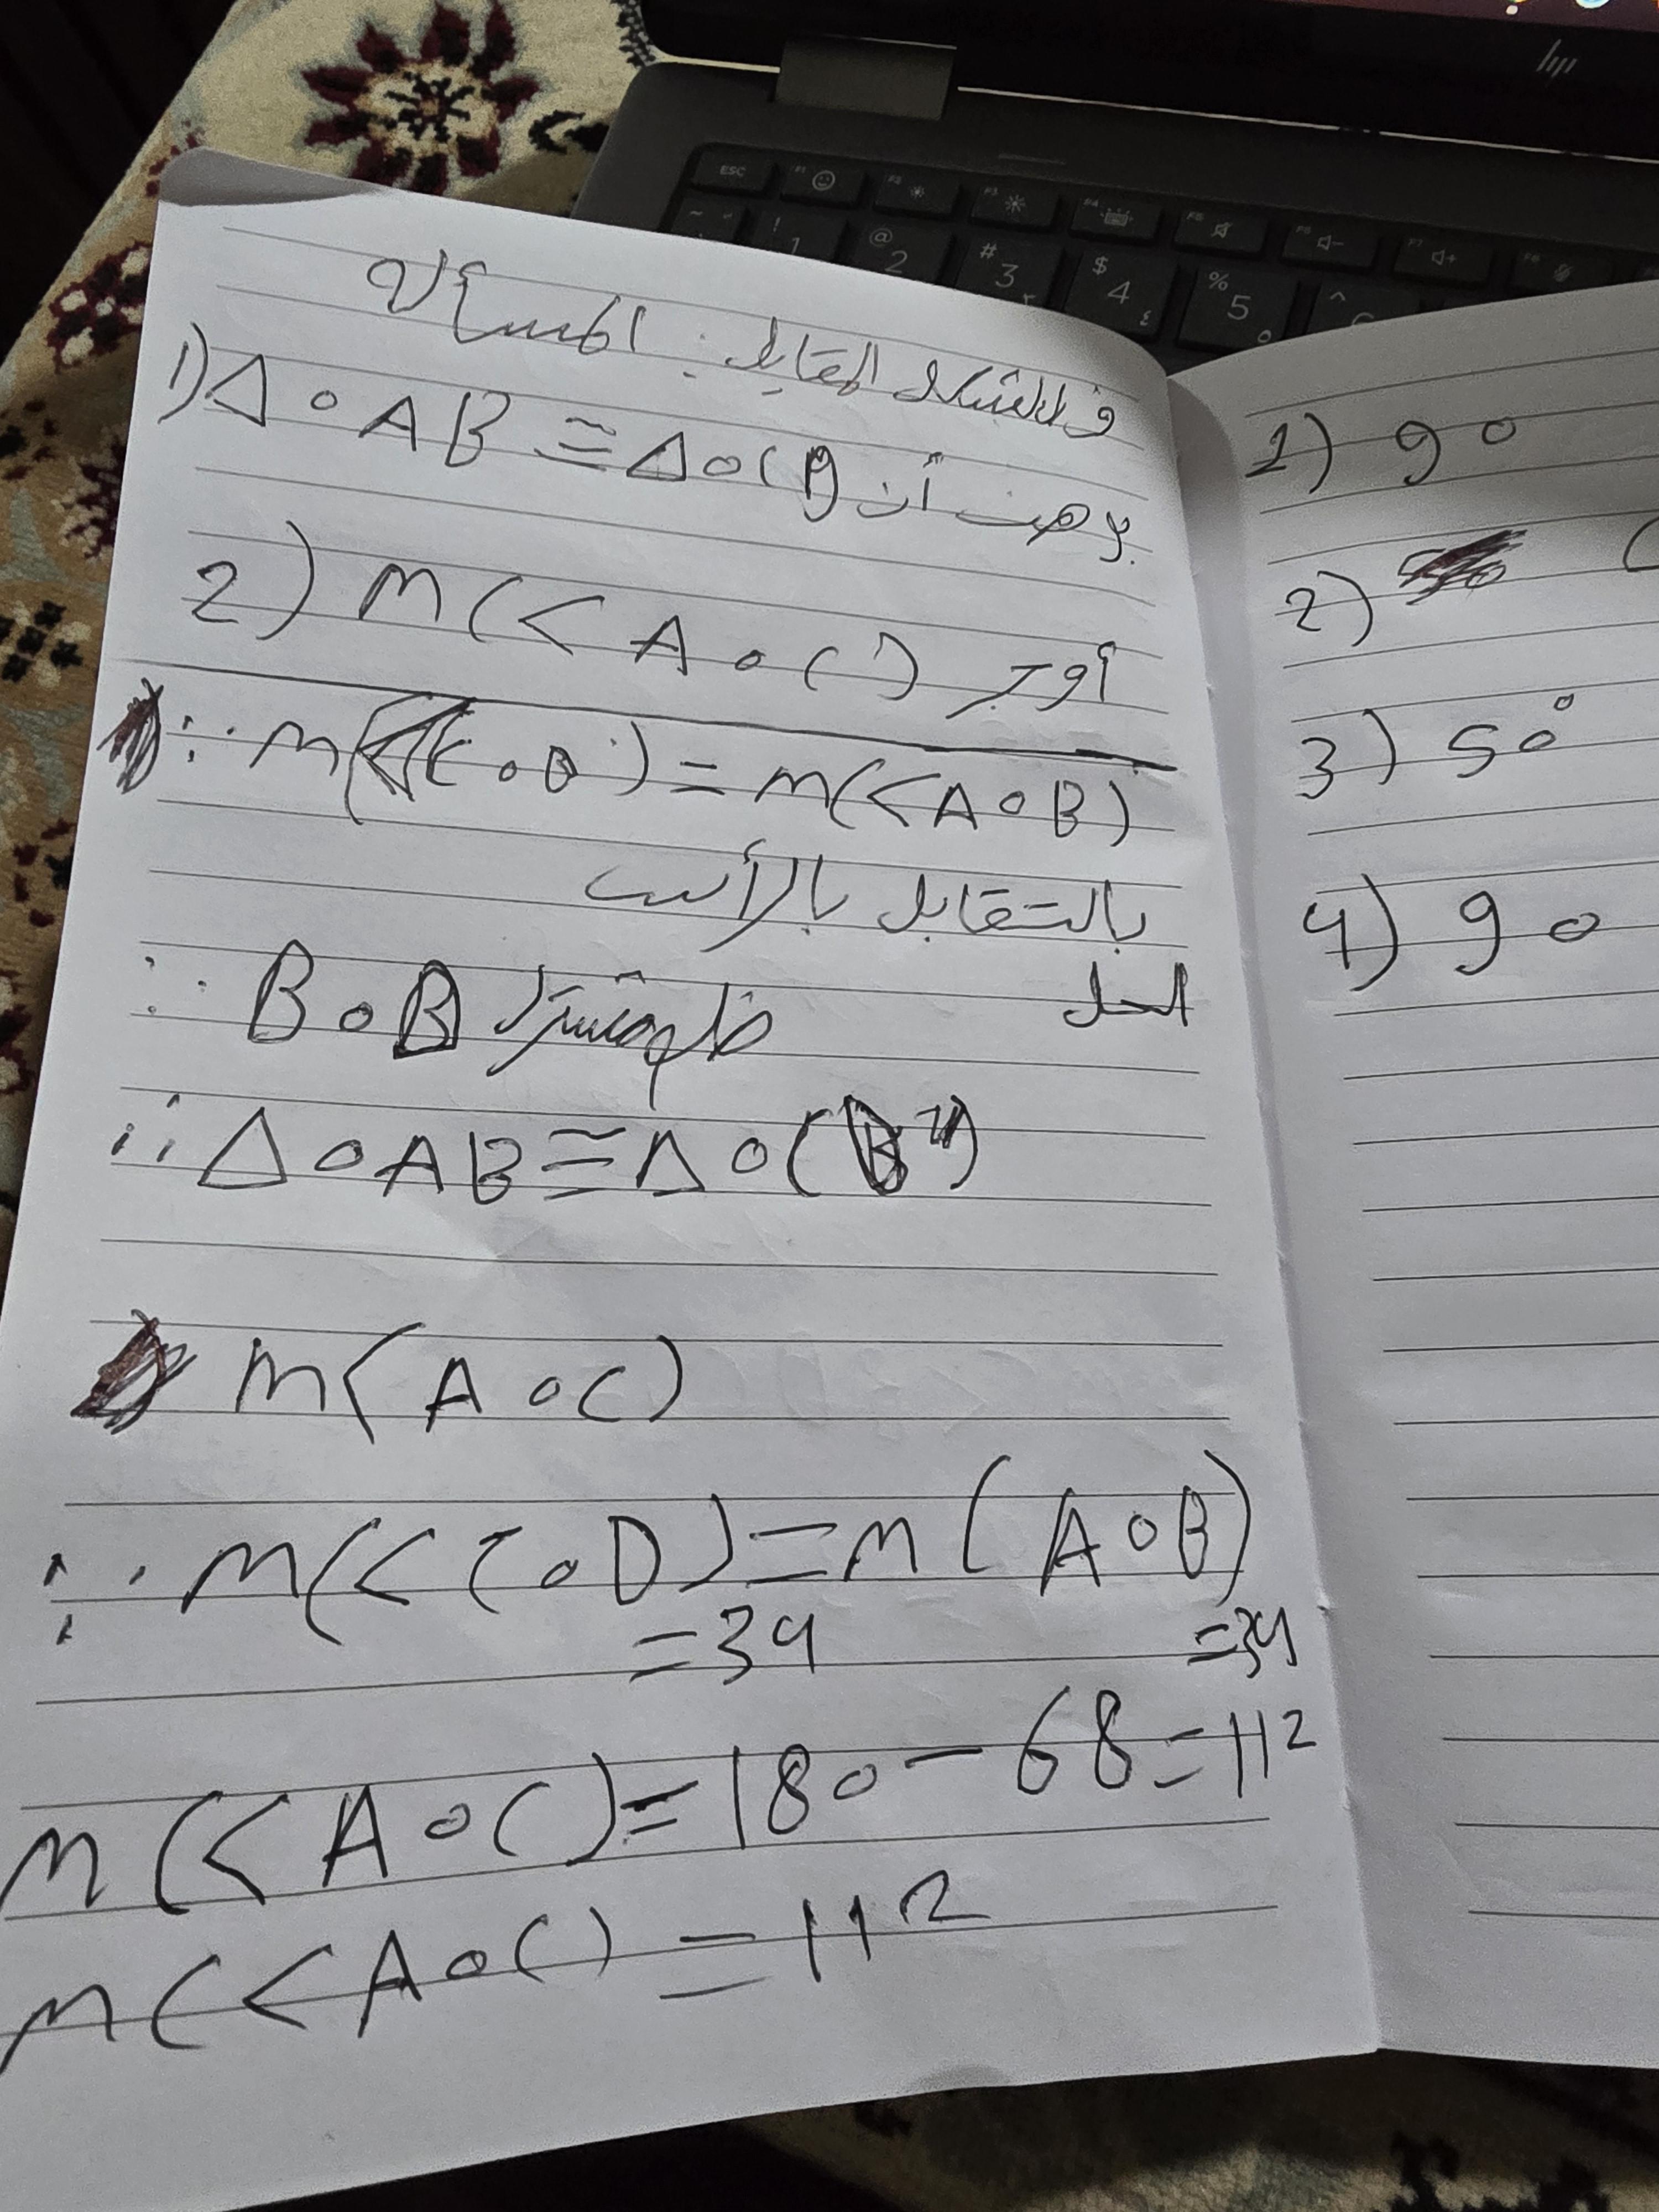 في الشكل المقابل: المسألة
1) △OAB ≅ △OCD برهن أن
2) m(<AOC) أوجد
∵ m(<COD) = m(<AOB)
بالتقابل بالرأس
الحل
∵ BOB ضلع مشترك
∴ △OAB ≅ △OC
m(AOC)
∵ m(<COD) = m(AOB)
=34 =34
m(<AOC)=180-68=112
m(<AOC) = 112
1) 90
2)
3) 50°
4) 90
hp
ESC F1 F2 F3 F4 F5 F6 F7
! 1 @ 2 # 3 $ 4 % 5 ^